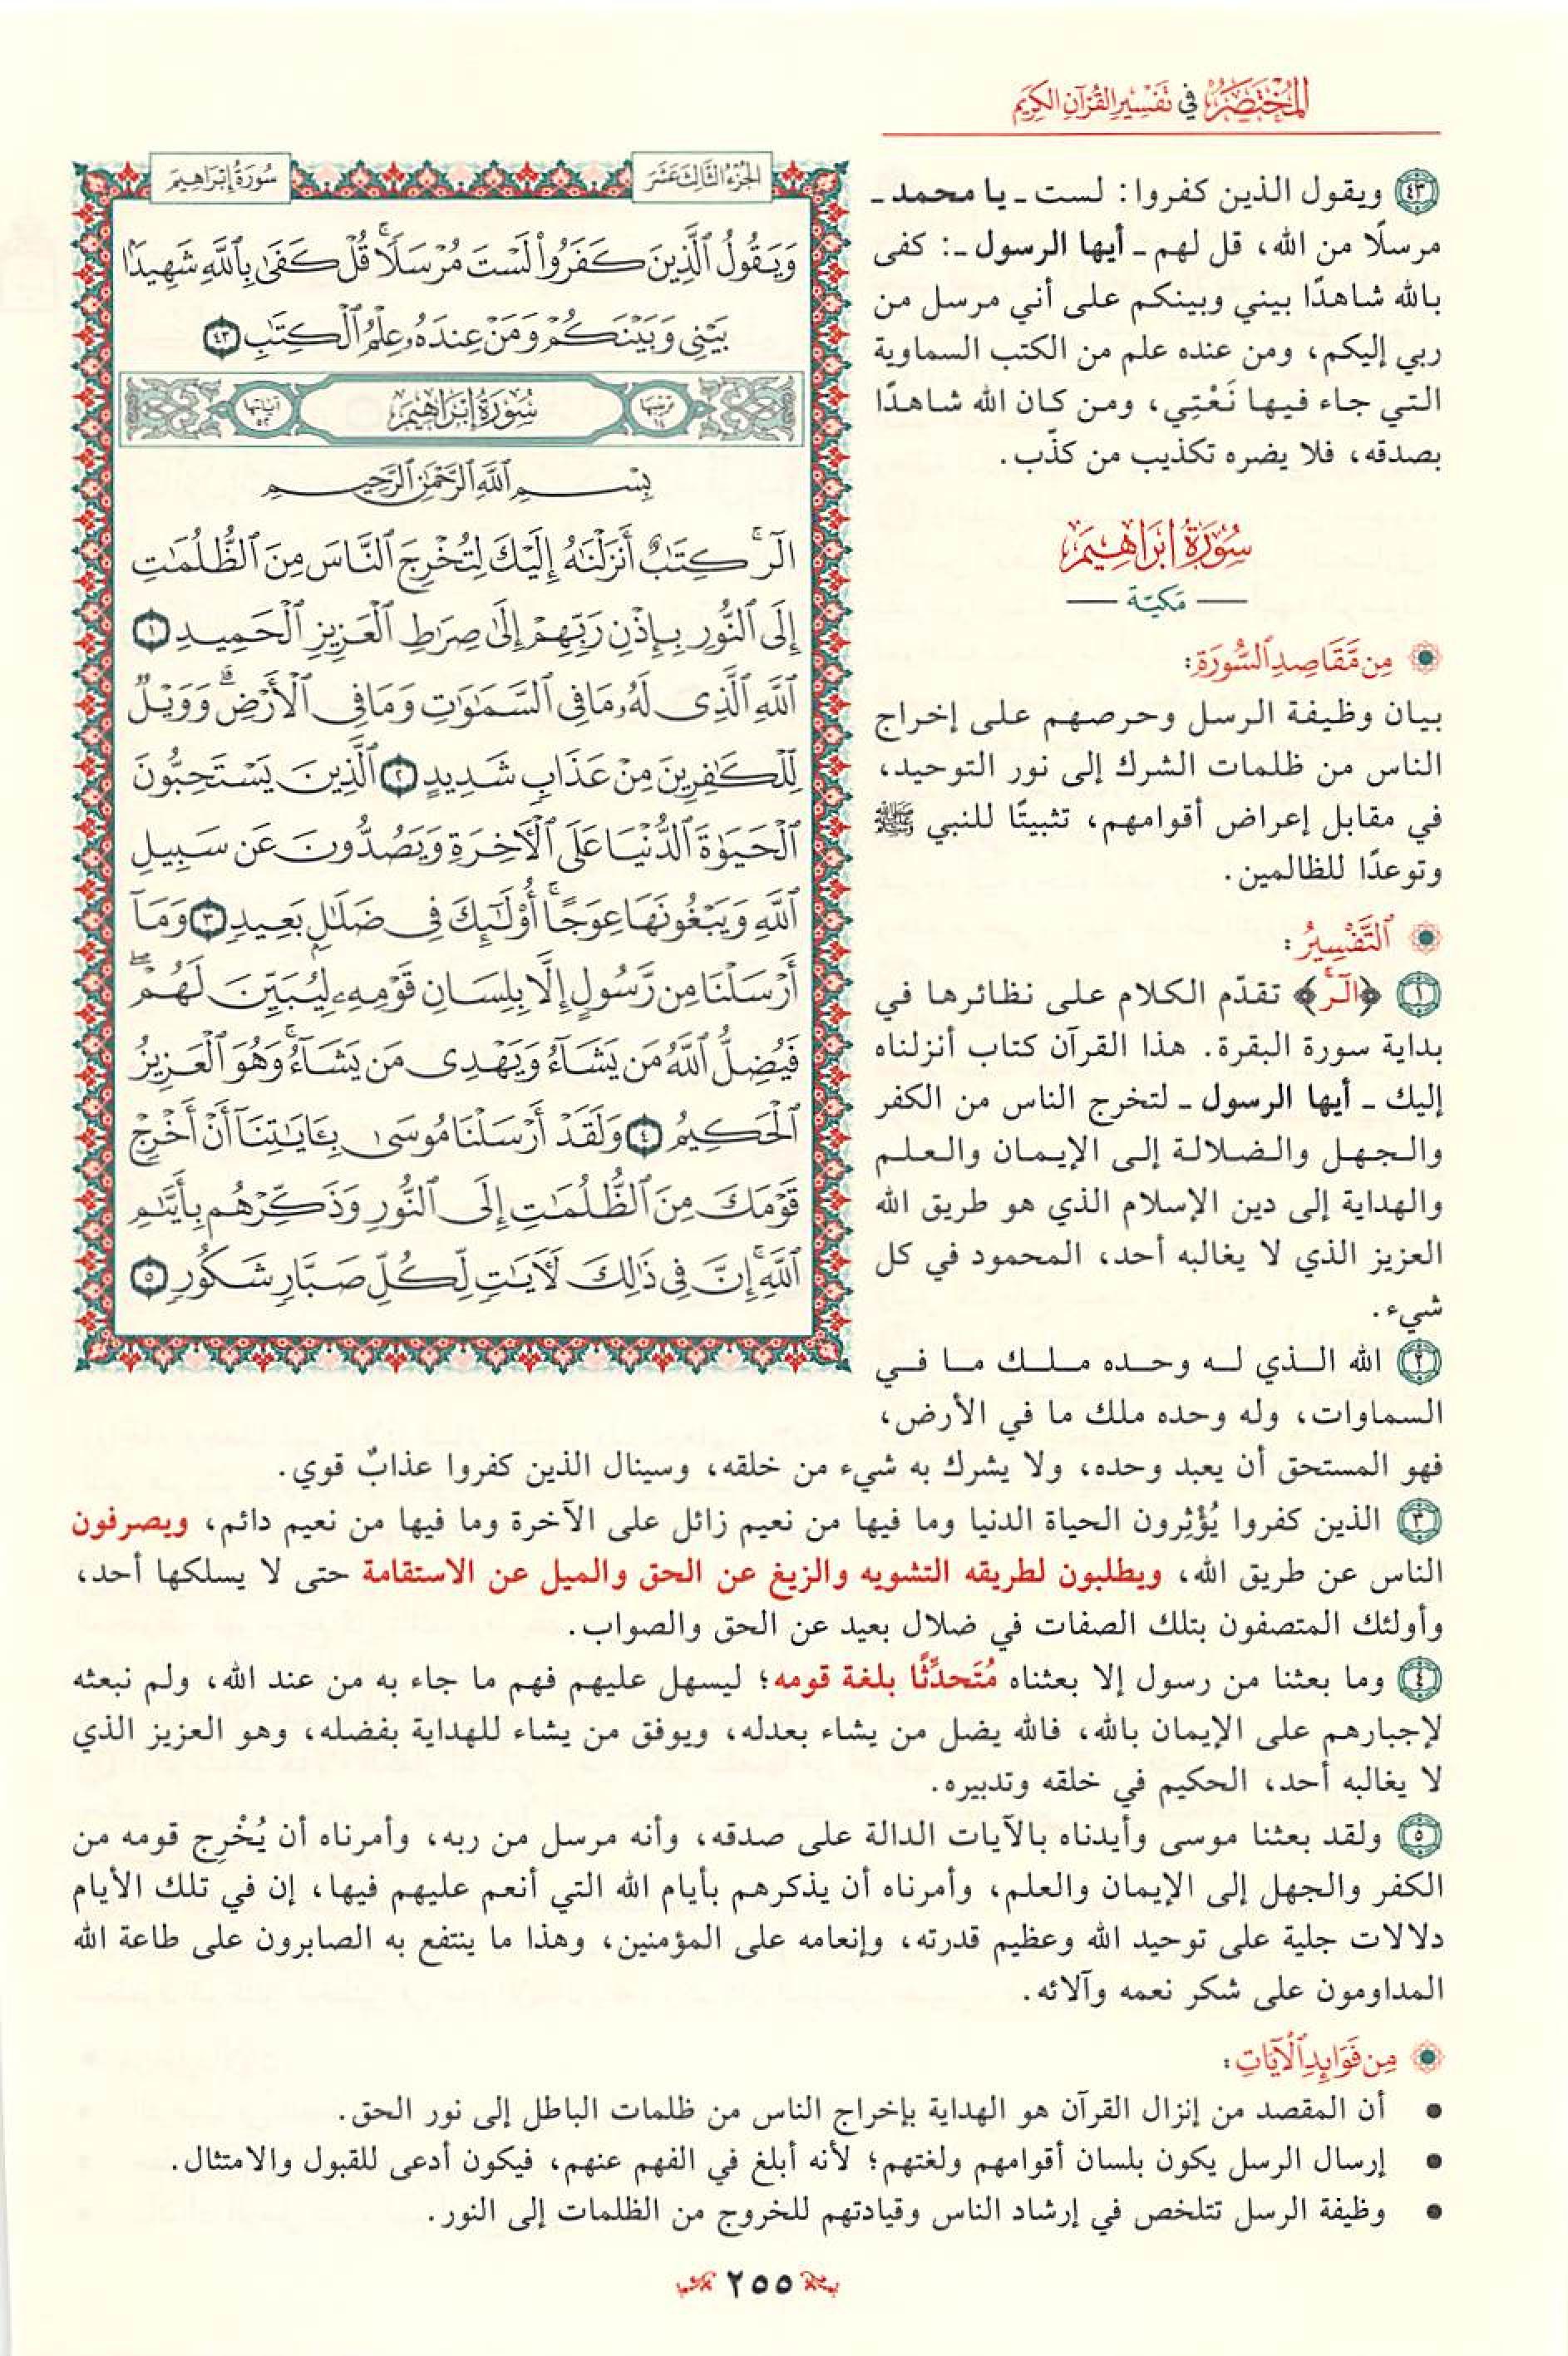 المختصر في تفسير القرآن الكريم
٤٣ ويقول الذين كفروا: لست ـ يا محمد ـ
مرسلًا من الله، قل لهم ـ أيها الرسول ـ: كفى
بالله شاهدًا بيني وبينكم على أني مرسل من
ربي إليكم، ومن عنده علم من الكتب السماوية
التي جاء فيها نَعْتِي، ومن كان الله شاهدًا
بصدقه، فلا يضره تكذيب من كذّب.
سُورَةُ إِبْرَاهِيمَ
— مَكيّة —
مِن مَّقَاصِدِ ٱلسُّورَةِ:
بيان وظيفة الرسل وحرصهم على إخراج
الناس من ظلمات الشرك إلى نور التوحيد،
في مقابل إعراض أقوامهم، تثبيتًا للنبي ﷺ
وتوعدًا للظالمين.
ٱلتَّفْسِيرُ:
١ ﴿الٓرۚ﴾ تقدّم الكلام على نظائرها في
بداية سورة البقرة. هذا القرآن كتاب أنزلناه
إليك ـ أيها الرسول ـ لتخرج الناس من الكفر
والجهل والضلالة إلى الإيمان والعلم
والهداية إلى دين الإسلام الذي هو طريق الله
العزيز الذي لا يغالبه أحد، المحمود في كل
شيء.
٢ الله الذي له وحده ملك ما في
السماوات، وله وحده ملك ما في الأرض،
الجُزْءُ الثَّالِثَ عَشَرَ
سُورَةُ إِبْرَاهِيمَ
وَيَقُولُ ٱلَّذِينَ كَفَرُواْ لَسْتَ مُرْسَلًاۚ قُلْ كَفَىٰ بِٱللَّهِ شَهِيدَۢا
بَيْنِي وَبَيْنَكُمْ وَمَنْ عِندَهُۥ عِلْمُ ٱلْكِتَٰبِ ٤٣
ترتيبها ١٤
سُورَةُ إِبْرَاهِيمَ
آياتها ٥٢
بِسْمِ ٱللَّهِ ٱلرَّحْمَٰنِ ٱلرَّحِيمِ
الٓرۚ كِتَٰبٌ أَنزَلْنَٰهُ إِلَيْكَ لِتُخْرِجَ ٱلنَّاسَ مِنَ ٱلظُّلُمَٰتِ
إِلَى ٱلنُّورِ بِإِذْنِ رَبِّهِمْ إِلَىٰ صِرَٰطِ ٱلْعَزِيزِ ٱلْحَمِيدِ ١
ٱللَّهِ ٱلَّذِي لَهُۥ مَا فِي ٱلسَّمَٰوَٰتِ وَمَا فِي ٱلْأَرْضِۗ وَوَيْلٌ
لِّلْكَٰفِرِينَ مِنْ عَذَابٍ شَدِيدٍ ٢ ٱلَّذِينَ يَسْتَحِبُّونَ
ٱلْحَيَوٰةَ ٱلدُّنْيَا عَلَى ٱلْأٓخِرَةِ وَيَصُدُّونَ عَن سَبِيلِ
ٱللَّهِ وَيَبْغُونَهَا عِوَجًاۚ أُوْلَٰٓئِكَ فِي ضَلَٰلٍۭ بَعِيدٍ ٣ وَمَآ
أَرْسَلْنَا مِن رَّسُولٍ إِلَّا بِلِسَانِ قَوْمِهِۦ لِيُبَيِّنَ لَهُمْۖ
فَيُضِلُّ ٱللَّهُ مَن يَشَآءُ وَيَهْدِي مَن يَشَآءُۚ وَهُوَ ٱلْعَزِيزُ
ٱلْحَكِيمُ ٤ وَلَقَدْ أَرْسَلْنَا مُوسَىٰ بِـَٔايَٰتِنَآ أَنْ أَخْرِجْ
قَوْمَكَ مِنَ ٱلظُّلُمَٰتِ إِلَى ٱلنُّورِ وَذَكِّرْهُم بِأَيَّىٰمِ
ٱللَّهِۚ إِنَّ فِي ذَٰلِكَ لَأٓيَٰتٍ لِّكُلِّ صَبَّارٍ شَكُورٍ ٥
فهو المستحق أن يعبد وحده، ولا يشرك به شيء من خلقه، وسينال الذين كفروا عذابٌ قوي.
٣ الذين كفروا يُؤْثِرون الحياة الدنيا وما فيها من نعيم زائل على الآخرة وما فيها من نعيم دائم، ويصرفون
الناس عن طريق الله، ويطلبون لطريقه التشويه والزيغ عن الحق والميل عن الاستقامة حتى لا يسلكها أحد،
وأولئك المتصفون بتلك الصفات في ضلال بعيد عن الحق والصواب.
٤ وما بعثنا من رسول إلا بعثناه مُتَحدِّثًا بلغة قومه؛ ليسهل عليهم فهم ما جاء به من عند الله، ولم نبعثه
لإجبارهم على الإيمان بالله، فالله يضل من يشاء بعدله، ويوفق من يشاء للهداية بفضله، وهو العزيز الذي
لا يغالبه أحد، الحكيم في خلقه وتدبيره.
٥ ولقد بعثنا موسى وأيدناه بالآيات الدالة على صدقه، وأنه مرسل من ربه، وأمرناه أن يُخْرِج قومه من
الكفر والجهل إلى الإيمان والعلم، وأمرناه أن يذكرهم بأيام الله التي أنعم عليهم فيها، إن في تلك الأيام
دلالات جلية على توحيد الله وعظيم قدرته، وإنعامه على المؤمنين، وهذا ما ينتفع به الصابرون على طاعة الله
المداومون على شكر نعمه وآلائه.
مِن فَوَائِدِ ٱلْآيَاتِ:
• أن المقصد من إنزال القرآن هو الهداية بإخراج الناس من ظلمات الباطل إلى نور الحق.
• إرسال الرسل يكون بلسان أقوامهم ولغتهم؛ لأنه أبلغ في الفهم عنهم، فيكون أدعى للقبول والامتثال.
• وظيفة الرسل تتلخص في إرشاد الناس وقيادتهم للخروج من الظلمات إلى النور.
٢٥٥